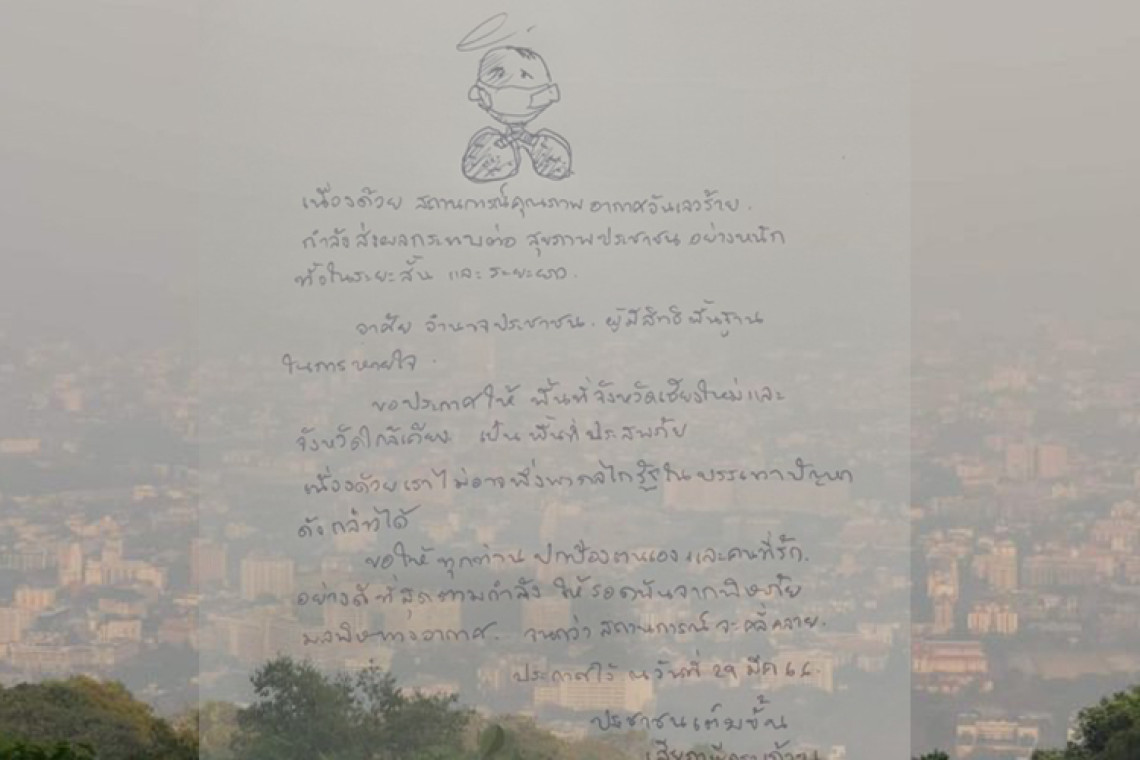 เนื่องด้วย สถานการณ์คุณภาพอากาศอันเลวร้าย.
กำลังส่งผลกระทบต่อ สุขภาพประชาชน อย่างหนัก
ทั้งในระยะสั้น และ ระยะยาว.
อาศัย อำนาจประชาชน. ผู้มีสิทธิพื้นฐาน
ในการหายใจ.
ขอประกาศให้ พื้นที่จังหวัดเชียงใหม่และ
จังหวัดใกล้เคียง เป็นพื้นที่ประสพภัย
เนื่องด้วยเราไม่อาจพึ่งพากลไกรัฐในบรรเทาปัญหา
ดังกล่าวได้
ขอให้ทุกท่าน ปกป้องตนเองและคนที่รัก.
อย่างดีที่สุดตามกำลัง ให้รอดพ้นจากพิษภัย
มลพิษทางอากาศ. จนกว่า สถานการณ์จะคลี่คลาย.
ประกาศไว้ ณ วันที่ 29 มีค
ประชาชนเต็มขั้น
เสียภาษีครบถ้วน